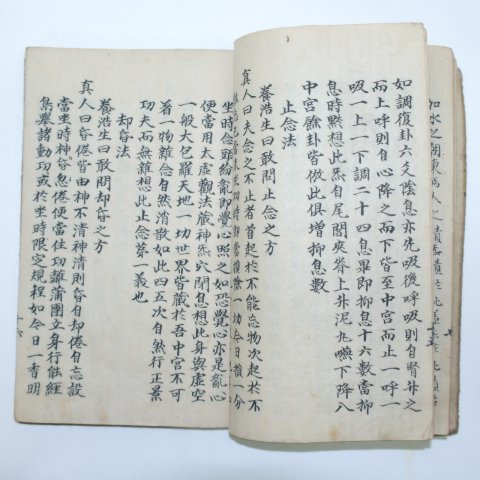 如調復卦六爻陰息亦先吸後呼吸則自腎升之
而上呼則自心降之而下皆至中宮而止一呼一
吸一上一下調二十四息畢即抑息十六數當抑
息時默想此炁自尾閭夾脊上升泥丸嚥下降入
中宮餘卦皆倣此俱增抑息數
止念法
養浩生曰敢問止念之方
真人曰夫念之不止者首起於不能忘物次起於不
坐時念頭紛亂即覺心照之如恐覺心亦是亂心
便當用太虛觀法藏神炁穴閉息想此身與虛空
一般大包羅天地一切世界皆藏於吾中宮不可
着一物雜念自然消散如此四五次自然行正景
功夫而無雜想此止念第一義也
却昏法
養浩生曰敢問却昏之方
真人曰昏倦皆由神不清神清則昏自却倦自忘設
當坐時神昏忽倦便當住功離蒲團立身行熊經
鳥舉諸動功或於坐時限定規程如今日一香明